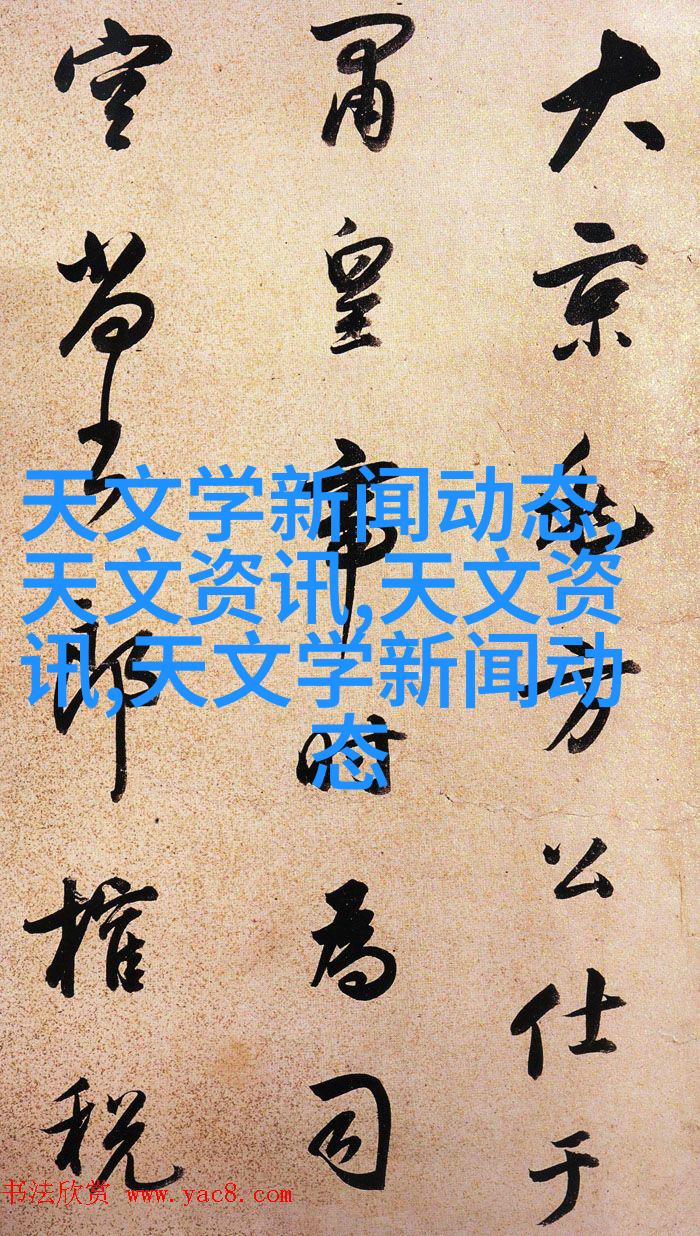 大京兆方公仕于
肅皇帝时為司
空尚書郎榷税
天文学新闻动态,
天文资讯,天文资
讯,天文学新闻动
态
书法欣赏 www.yac8.com